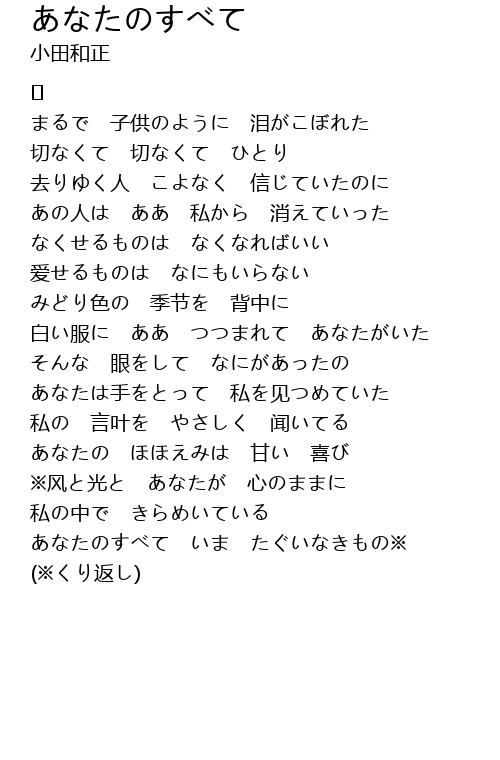 あなたのすべて
小田和正
[]
まるで　子供のように　泪がこぼれた
切なくて　切なくて　ひとり
去りゆく人　こよなく　信じていたのに
あの人は　ああ　私から　消えていった
なくせるものは　なくなればいい
爱せるものは　なにもいらない
みどり色の　季节を　背中に
白い服に　ああ　つつまれて　あなたがいた
そんな　眼をして　なにがあったの
あなたは手をとって　私を见つめていた
私の　言叶を　やさしく　闻いてる
あなたの　ほほえみは　甘い　喜び
※风と光と　あなたが　心のままに
私の中で　きらめいている
あなたのすべて　いま　たぐいなきもの※
(※くり返し)